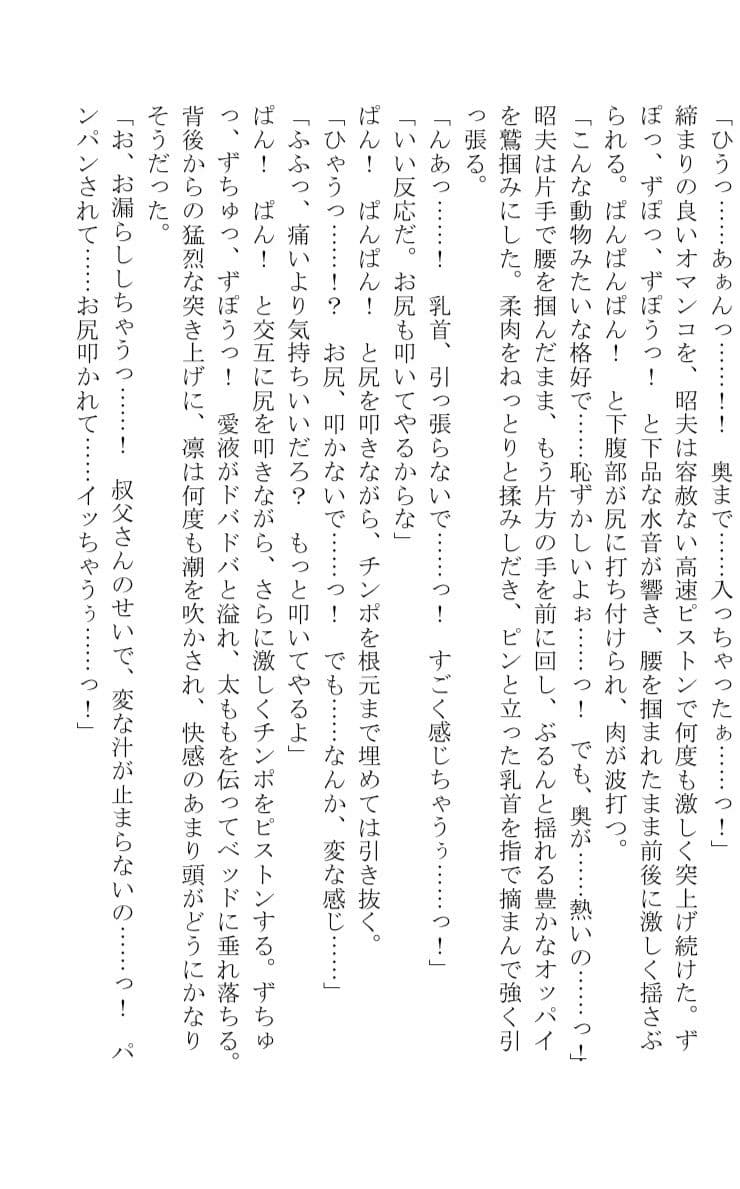 「ひうっ……あぁんっ……！！　奥まで……入っちゃったぁ……っ！」
締まりの良いオマンコを、昭夫は容赦ない高速ピストンで何度も激しく突上げ続けた。ず
ぽっ、ずぽっ、ずぽうっ！　と下品な水音が響き、腰を掴まれたまま前後に激しく揺さぶ
られる。ぱんぱんぱん！　と下腹部が尻に打ち付けられ、肉が波打つ。
「こんな動物みたいな格好で……恥ずかしいよぉ……っ！　でも、奥が……熱いの……っ！」
昭夫は片手で腰を掴んだまま、もう片方の手を前に回し、ぶるんと揺れる豊かなオッパイ
を鷲掴みにした。柔肉をねっとりと揉みしだき、ピンと立った乳首を指で摘まんで強く引
っ張る。
「んあっ……！　乳首、引っ張らないで……っ！　すごく感じちゃうぅ……っ！」
「いい反応だ。お尻も叩いてやるからな」
ぱん！　ぱんぱん！　と尻を叩きながら、チンポを根元まで埋めては引き抜く。
「ひゃうっ……！？　お尻、叩かないで……っ！　でも……なんか、変な感じ……」
「ふふっ、痛いより気持ちいいだろ？　もっと叩いてやるよ」
ぱん！　ぱん！　と交互に尻を叩きながら、さらに激しくチンポをピストンする。ずちゅ
っ、ずちゅっ、ずぽうっ！　愛液がドバドバと溢れ、太ももを伝ってベッドに垂れ落ちる。
背後からの猛烈な突き上げに、凛は何度も潮を吹かされ、快感のあまり頭がどうにかなり
そうだった。
「お、お漏らししちゃうっ……！　叔父さんのせいで、変な汁が止まらないの……っ！　パ
ンパンされて……お尻叩かれて……イッちゃうぅ……っ！」